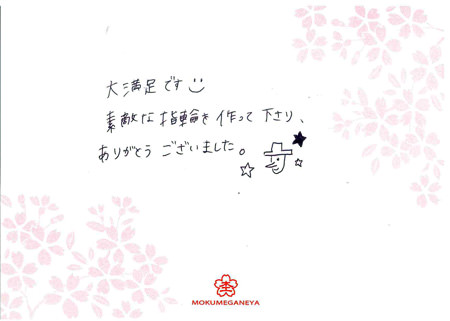 大満足です
素敵な指輪を作って下さり、
ありがとうございました。
MOKUMEGANEYA